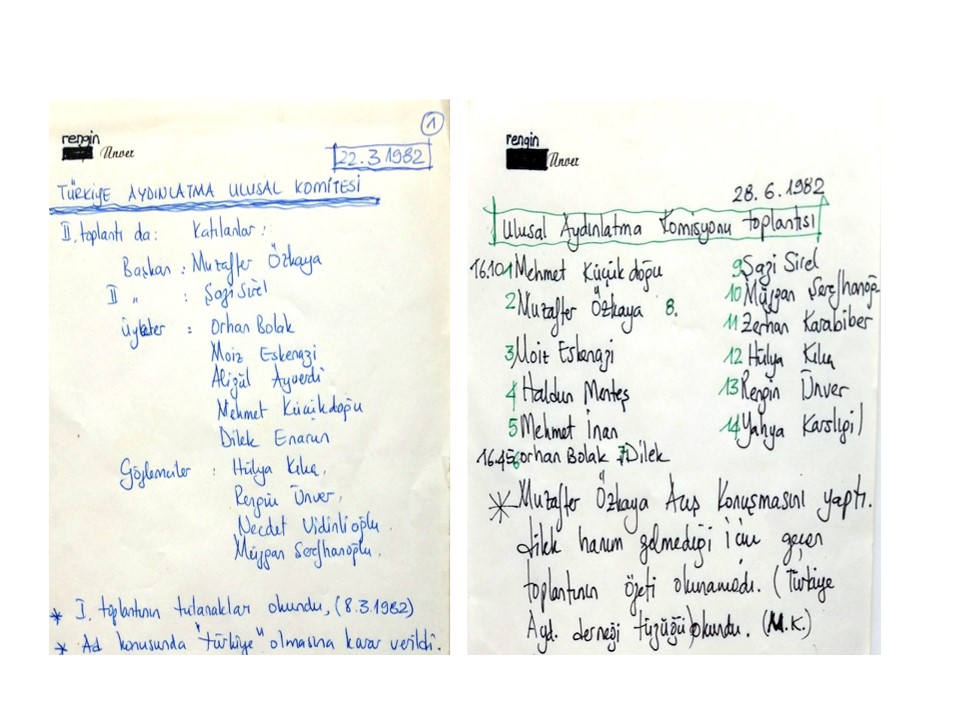 1
rengin
Ünver
22.3 1982
TÜRKİYE AYDINLATMA ULUSAL KOMİTESİ
II. toplantı da: Katılanlar:
Başkan : Muzaffer Özkaya
II " : Şazi Sirel
Üyeler : Orhan Bolak
Moiz Eskenazi
Aligül Ayverdi
Mehmet Küçükdoğu
Dilek Enarun
Gözlemciler : Hülya Kılıç,
Rengin Ünver,
Necdet Vidinlioğlu.
Müjgan Şerefhanoğlu.
* I. toplantının tutanakları okundu, (8.3.1982)
* Ad konusunda "türkiye" olmasına karar verildi.
rengin
Ünver
28.6.1982
Ulusal Aydınlatma Komisyonu toplantısı
16.10 1 Mehmet Küçükdoğu
2 Muzaffer Özkaya 8.
3 Moiz Eskenazi
4 Haldun Menteş
5 Mehmet İnan
16.45 6 Orhan Bolak 7 Dilek
9 Şazi Sirel
10 Müjgan Şerefhanoğ
11 Zerhan Karabiber
12 Hülya Kılıç
13 Rengin Ünver
14 Yahya Karslıgil
* Muzaffer Özkaya Açış Konuşmasını yaptı.
dilek hanım gelmediği için geçen
toplantının özeti okunamadı. (Türkiye
Ayd. derneği tüzüğü) okundu. (M.K.)